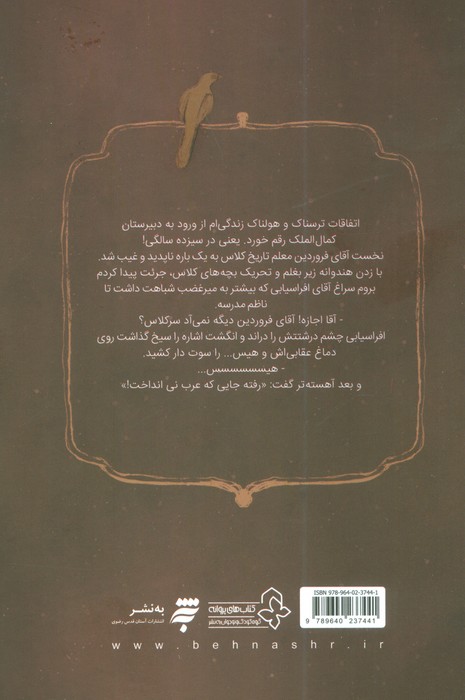 اتفاقات ترسناک و هولناک زندگی‌ام از ورود به دبیرستان
کمال‌الملک رقم خورد. یعنی در سیزده سالگی!
نخست آقای فروردین معلم تاریخ کلاس به یک باره ناپدید و غیب شد.
با زدن هندوانه زیر بغلم و تحریک بچه‌های کلاس، جرئت پیدا کردم
بروم سراغ آقای افراسیابی که بیشتر به میرغضب شباهت داشت تا
ناظم مدرسه.
- آقا اجازه! آقای فروردین دیگه نمی‌آد سرکلاس؟
افراسیابی چشم درشتش را دراند و انگشت اشاره را سیخ گذاشت روی
دماغ عقابی‌اش و هیس... را سوت دار کشید.
- هیسسسسسس...
و بعد آهسته‌تر گفت: «رفته جایی که عرب نی انداخت!»
ISBN 978-964-02-3744-1
9 789640 237441
کتاب‌های پروانه
گروه کودک و نوجوان به‌نشر
به‌نشر
انتشارات آستان قدس رضوی
www.behnashr.ir